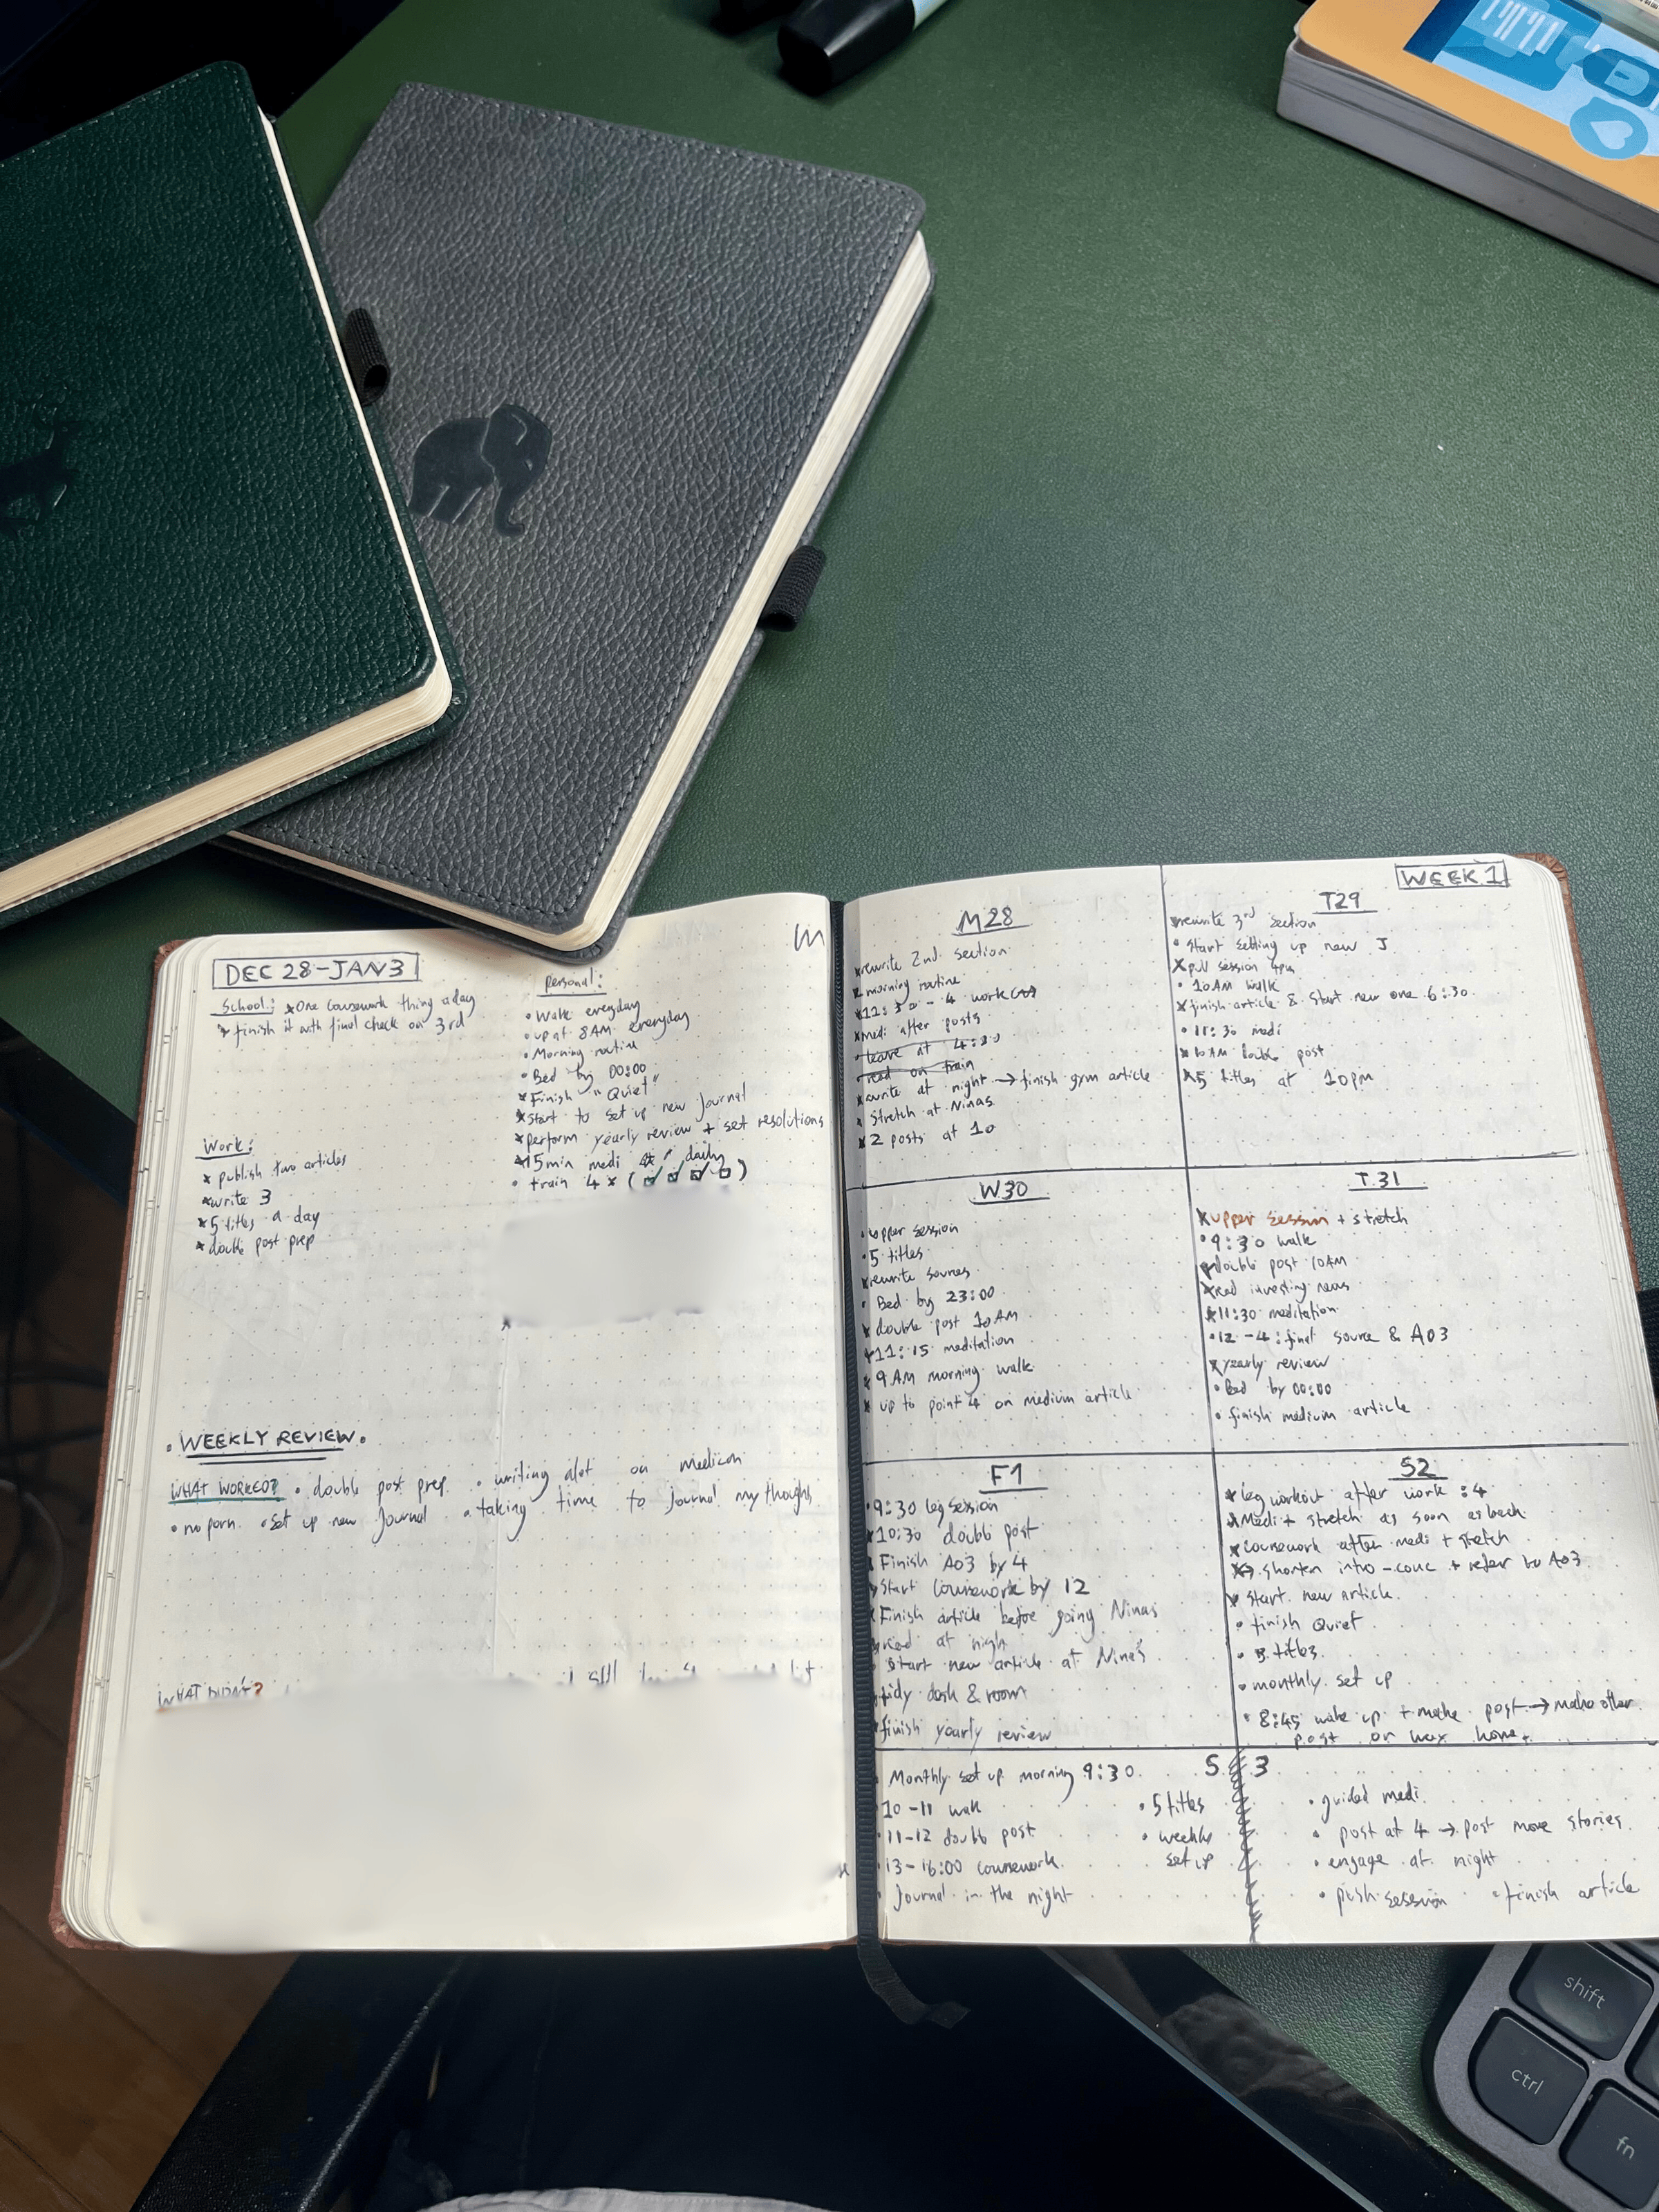 DEC 28-JAN 3
School: × One coursework thing a day
× finish it with final check on 3rd
Personal:
• Walk everyday
• up at 8AM everyday
• Morning routine
• Bed by 00:00
× Finish "Quiet"
× Start to set up new Journal
× perform yearly review + set resolutions
× 15min medi daily
• train 4 × (
Work:
× publish two articles
× write 3
× 5 titles a day
× double post prep
• WEEKLY REVIEW •
WHAT WORKED? • double post prep • writing alot on medium
• no porn • set up new Journal • taking time to journal my thoughts
WHAT DIDN'T?
still
WEEK 1
M28
× rewrite 2nd section
× morning routine
× 11:30 - 4 work
× medi after posts
• leave at 4:30
• read on train
× write at night → finish gym article
× Stretch at Ninas
× 2 posts at 10
T29
× rewrite 3rd section
• Start setting up new J
× pull session 4pm
• 10AM walk
× finish article & start new one 6:30
• 11:30 medi
× 10AM double post
× 5 titles at 10pm
W30
• upper session
• 5 titles
× rewrite sources
• Bed by 23:00
× double post 10AM
× 11:15 meditation
× 9AM morning walk
× up to point 4 on medium article
T.31
× upper session + stretch
• 9:30 walk
× double post 10AM
× read investing news
× 11:30 meditation
• 12 - 4: final source & A03
× yearly review
• Bed by 00:00
• finish medium article
F1
• 9:30 leg session
× 10:30 double post
× Finish A03 by 4
× Start coursework by 12
× Finish article before going Ninas
× read at night
• Start new article at Nina's
× tidy desk & room
× finish yearly review
S2
× leg workout after work :4
× Medi + stretch as soon as back
× coursework after medi + stretch
× → shorten intro - conc + refer to A03
× Start new article
• finish Quiet
• 5 titles
• monthly set up
• 8:45 wake up + make post → make other
post or wax home
S 3
• Monthly set up morning 9:30
• 10-11 walk
• 11-12 double post
• 13-16:00 coursework
• Journal in the night
• 5 titles
• weekly
set up
• guided medi
• post at 4 → post more stories
• engage at night
• push session • finish article
shift
ctrl
fn